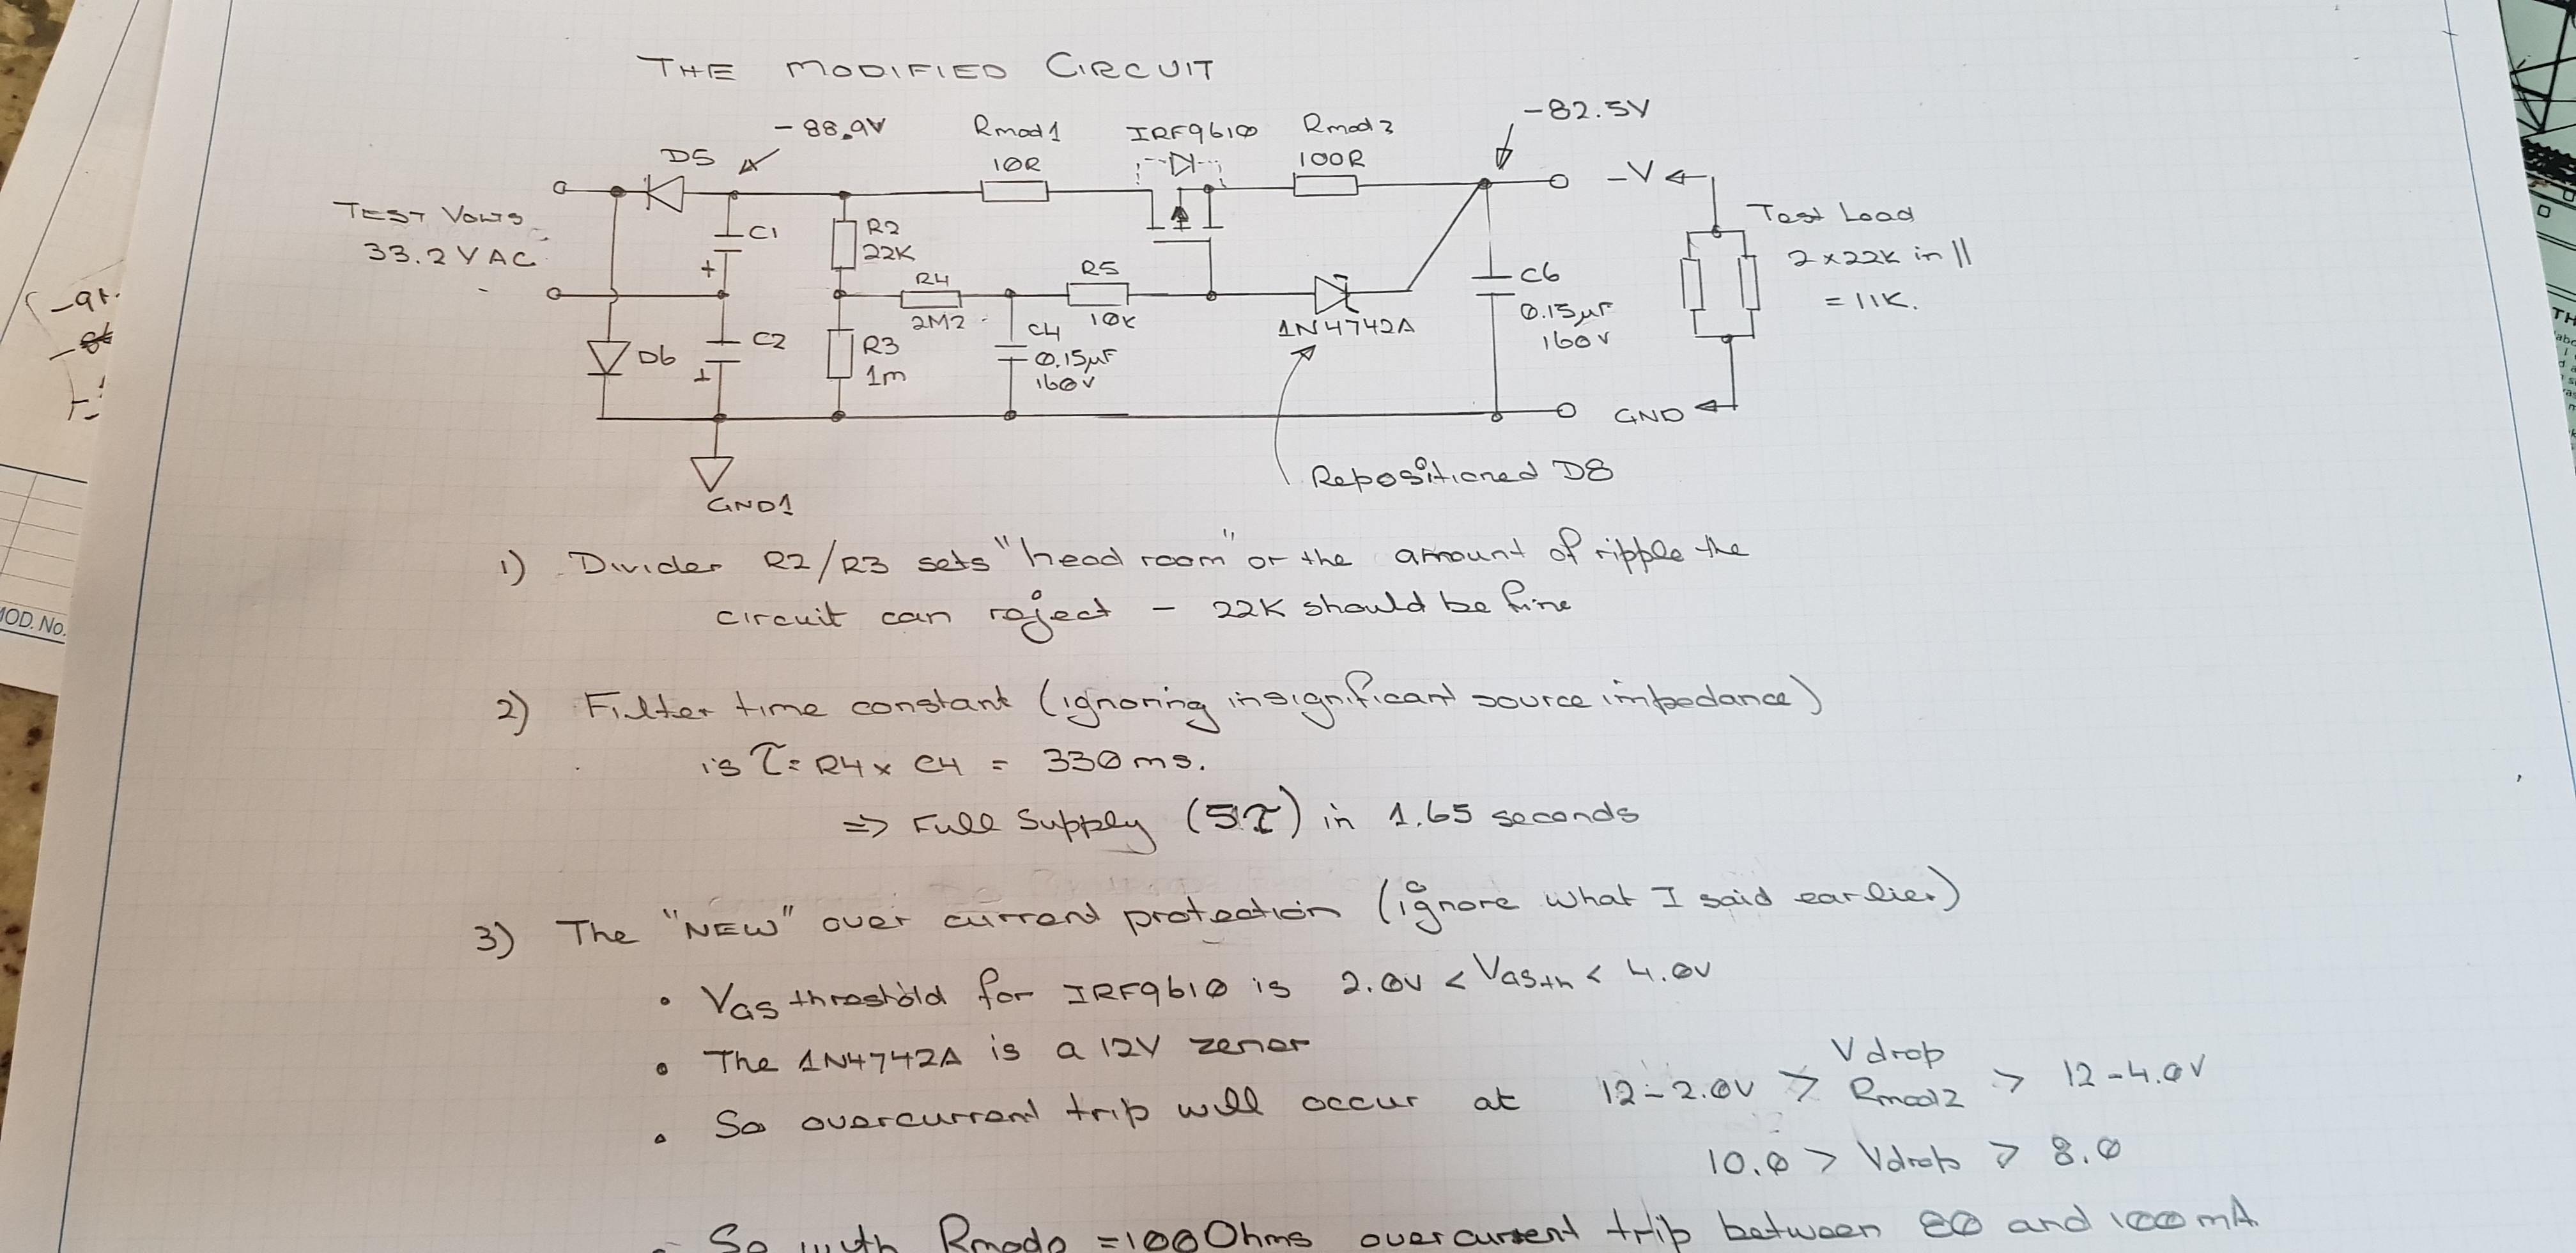 THE MODIFIED CIRCUIT
-88.9V
Rmod1
10R
IRF9610
Rmod2
100R
-82.5V
D5
-V
TEST VOLTS
33.2VAC
C1
+
R2
22K
R4
2M2
R5
10K
C4
0.15µF
160V
1N4742A
C6
0.15µF
160V
Test Load
2x22K in ||
= 11K.
D6
C2
+
R3
1m
GND
GND1
Repositioned D8
1) Divider R2/R3 sets "head room" or the amount of ripple the
circuit can reject - 22K should be fine
2) Filter time constant (ignoring insignificant source impedance)
is τ = R4 x C4 = 330ms.
=> Full Supply (5τ) in 1.65 seconds
3) The "NEW" over current protection (ignore what I said earlier)
• VGS threshold for IRF9610 is 2.0V < VGSth < 4.0V
• The 1N4742A is a 12V zener
• So overcurrent trip will occur at 12-2.0V > Vdrop Rmod2 > 12-4.0V
10.0 > Vdrop > 8.0
So with Rmod2 = 100 Ohms overcurrent trip between 80 and 100mA
MOD. No.